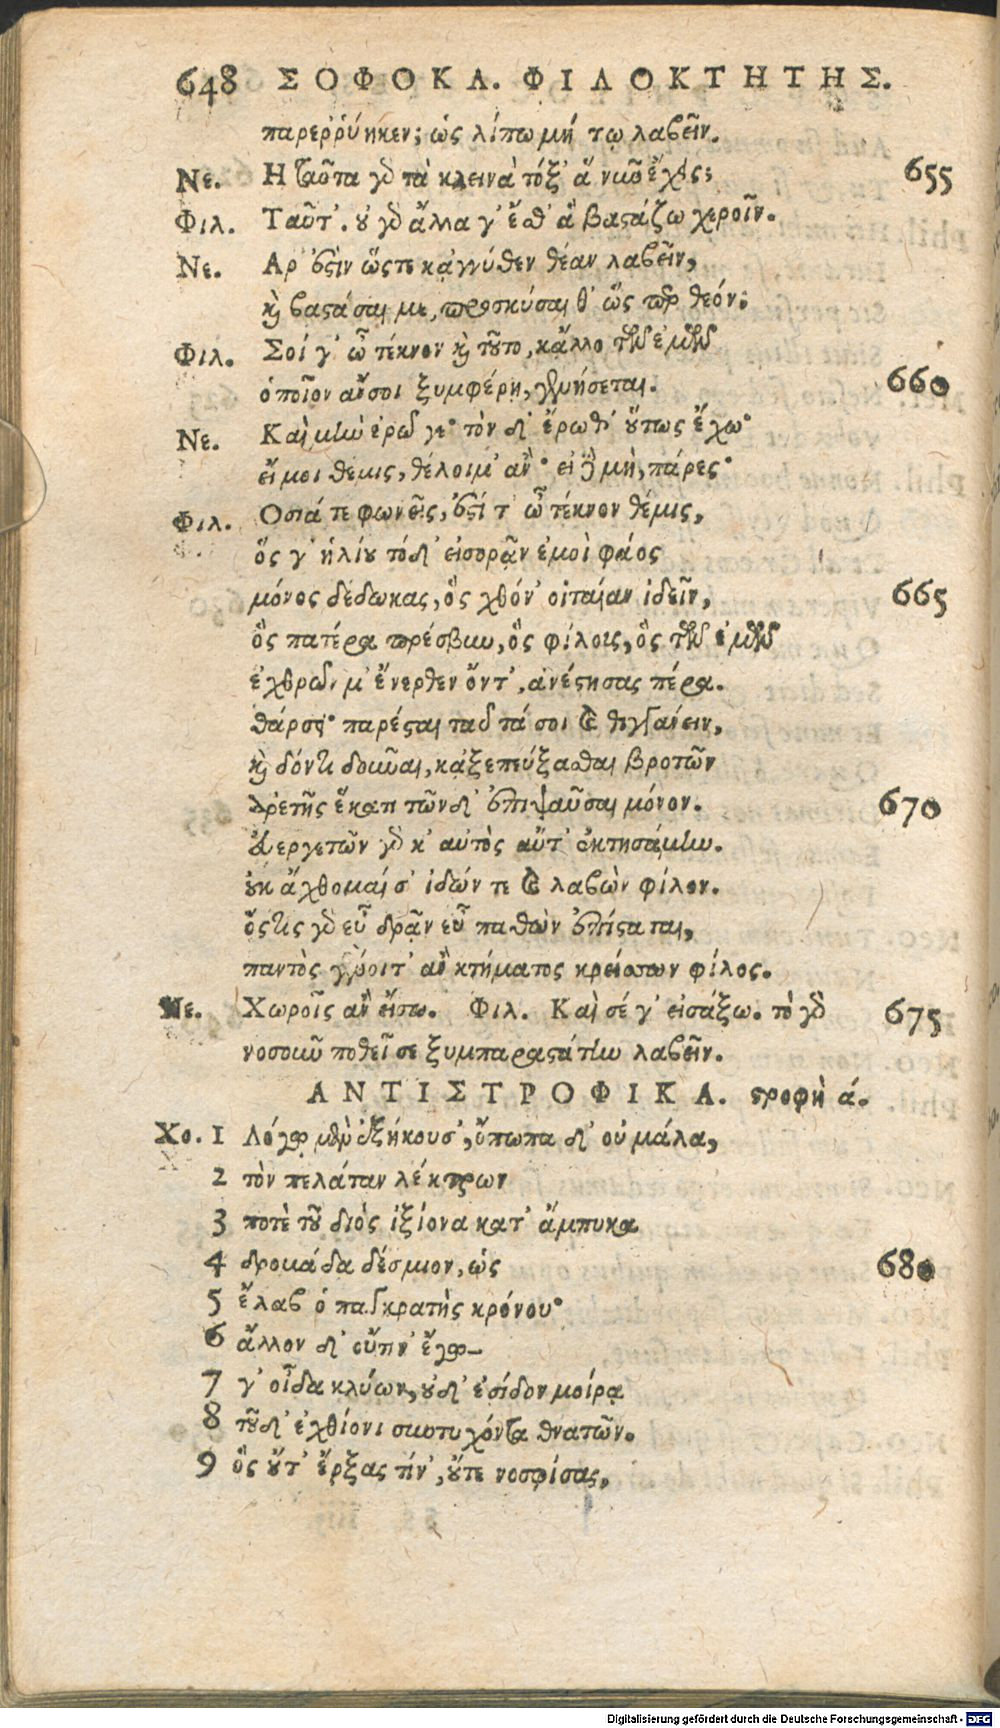 648 ΣΟΦΟΚΛ. ΦΙΛΟΚΤΗΤΗΣ.
παρερρύηκεν; ὡς λίπω μή τῳ λαβεῖν.
Νε. Η ταῦτα γὰρ τὰ κλεινὰ τόξ' ἃ νῦν ἔχεις; 655
Φιλ. Ταῦτ'. οὐ γὰρ ἄλλα γ' ἔσθ' ἃ βαστάζω χεροῖν.
Νε. Αρ' ἐστὶν ὥστε καγγύθεν θέαν λαβεῖν,
καὶ βαστάσαι με, προσκύσαι θ' ὥσπερ θεόν;
Φιλ. Σοί γ' ὦ τέκνον καὶ τοῦτο, κἄλλο τῶν ἐμῶν
ὁποῖον αὖ σοι ξυμφέρῃ, γενήσεται. 660
Νε. Καὶ μὴν ἐρῶ γε· τὸν δ' ἔρωθ' οὕτως ἔχω·
εἴ μοι θέμις, θέλοιμ' ἂν· εἰ δὲ μὴ, πάρες·
Φιλ. Οσιά τε φωνεῖς, ἐστί τ' ὦ τέκνον θέμις,
ὅς γ' ἡλίου τόδ' εἰσορᾶν ἐμοὶ φάος
μόνος δέδωκας, ὃς χθόν' οἰταίαν ἰδεῖν, 665
ὃς πατέρα πρέσβυν, ὃς φίλοις, ὃς τῶν ἐμῶν
ἐχθρῶν μ' ἔνερθεν ὄντ', ἀνέστησας πέρα.
θάρσει· παρέσται ταῦτά σοι καὶ θιγγάνειν,
καὶ δόντι δοῦναι, καξεπεύξασθαι βροτῶν
ἀρετῆς ἕκατι τῶνδ' ἐπιψαῦσαι μόνον. 670
εὐεργετῶν γὰρ κ' αὐτὸς αὔτ' ἐκτησάμην.
οὐκ ἄχθομαί σ' ἰδών τε καὶ λαβὼν φίλον.
ὅστις γὰρ εὖ δρᾶν εὖ παθὼν ἐπίσταται,
παντὸς γένοιτ' ἂν κτήματος κρείσσων φίλος.
Νε. Χωροῖς ἂν εἴσω. Φιλ. Καὶ σέ γ' εἰσάξω. τὸ γὰρ 675
νοσοῦν ποθεῖ σε ξυμπαραστάτην λαβεῖν.
ΑΝΤΙΣΤΡΟΦΙΚΑ. στροφὴ ά.
Χο. 1 Λόγῳ μὲν ἐξήκουσ', ὄπωπα δ' οὐ μάλα,
2 τὸν πελάταν λέκτρων
3 ποτὲ τοῦ διὸς ἰξίονα κατ' ἄμπυκα
4 δρομάδα δέσμιον, ὡς 680
5 ἔλαβ ὁ παγκρατὴς κρόνου·
6 ἄλλον δ' οὔτιν' ἔγω-
7 γ' οἶδα κλύων, οὐδ' ἐσίδον μοίρᾳ
8 τοῦδ' ἐχθίονι συντυχόντα θνατῶν.
9 ὃς οὔτ' ἔρξας τίν', οὔτε νοσφίσας,
Digitalisierung gefördert durch die Deutsche Forschungsgemeinschaft - DFG